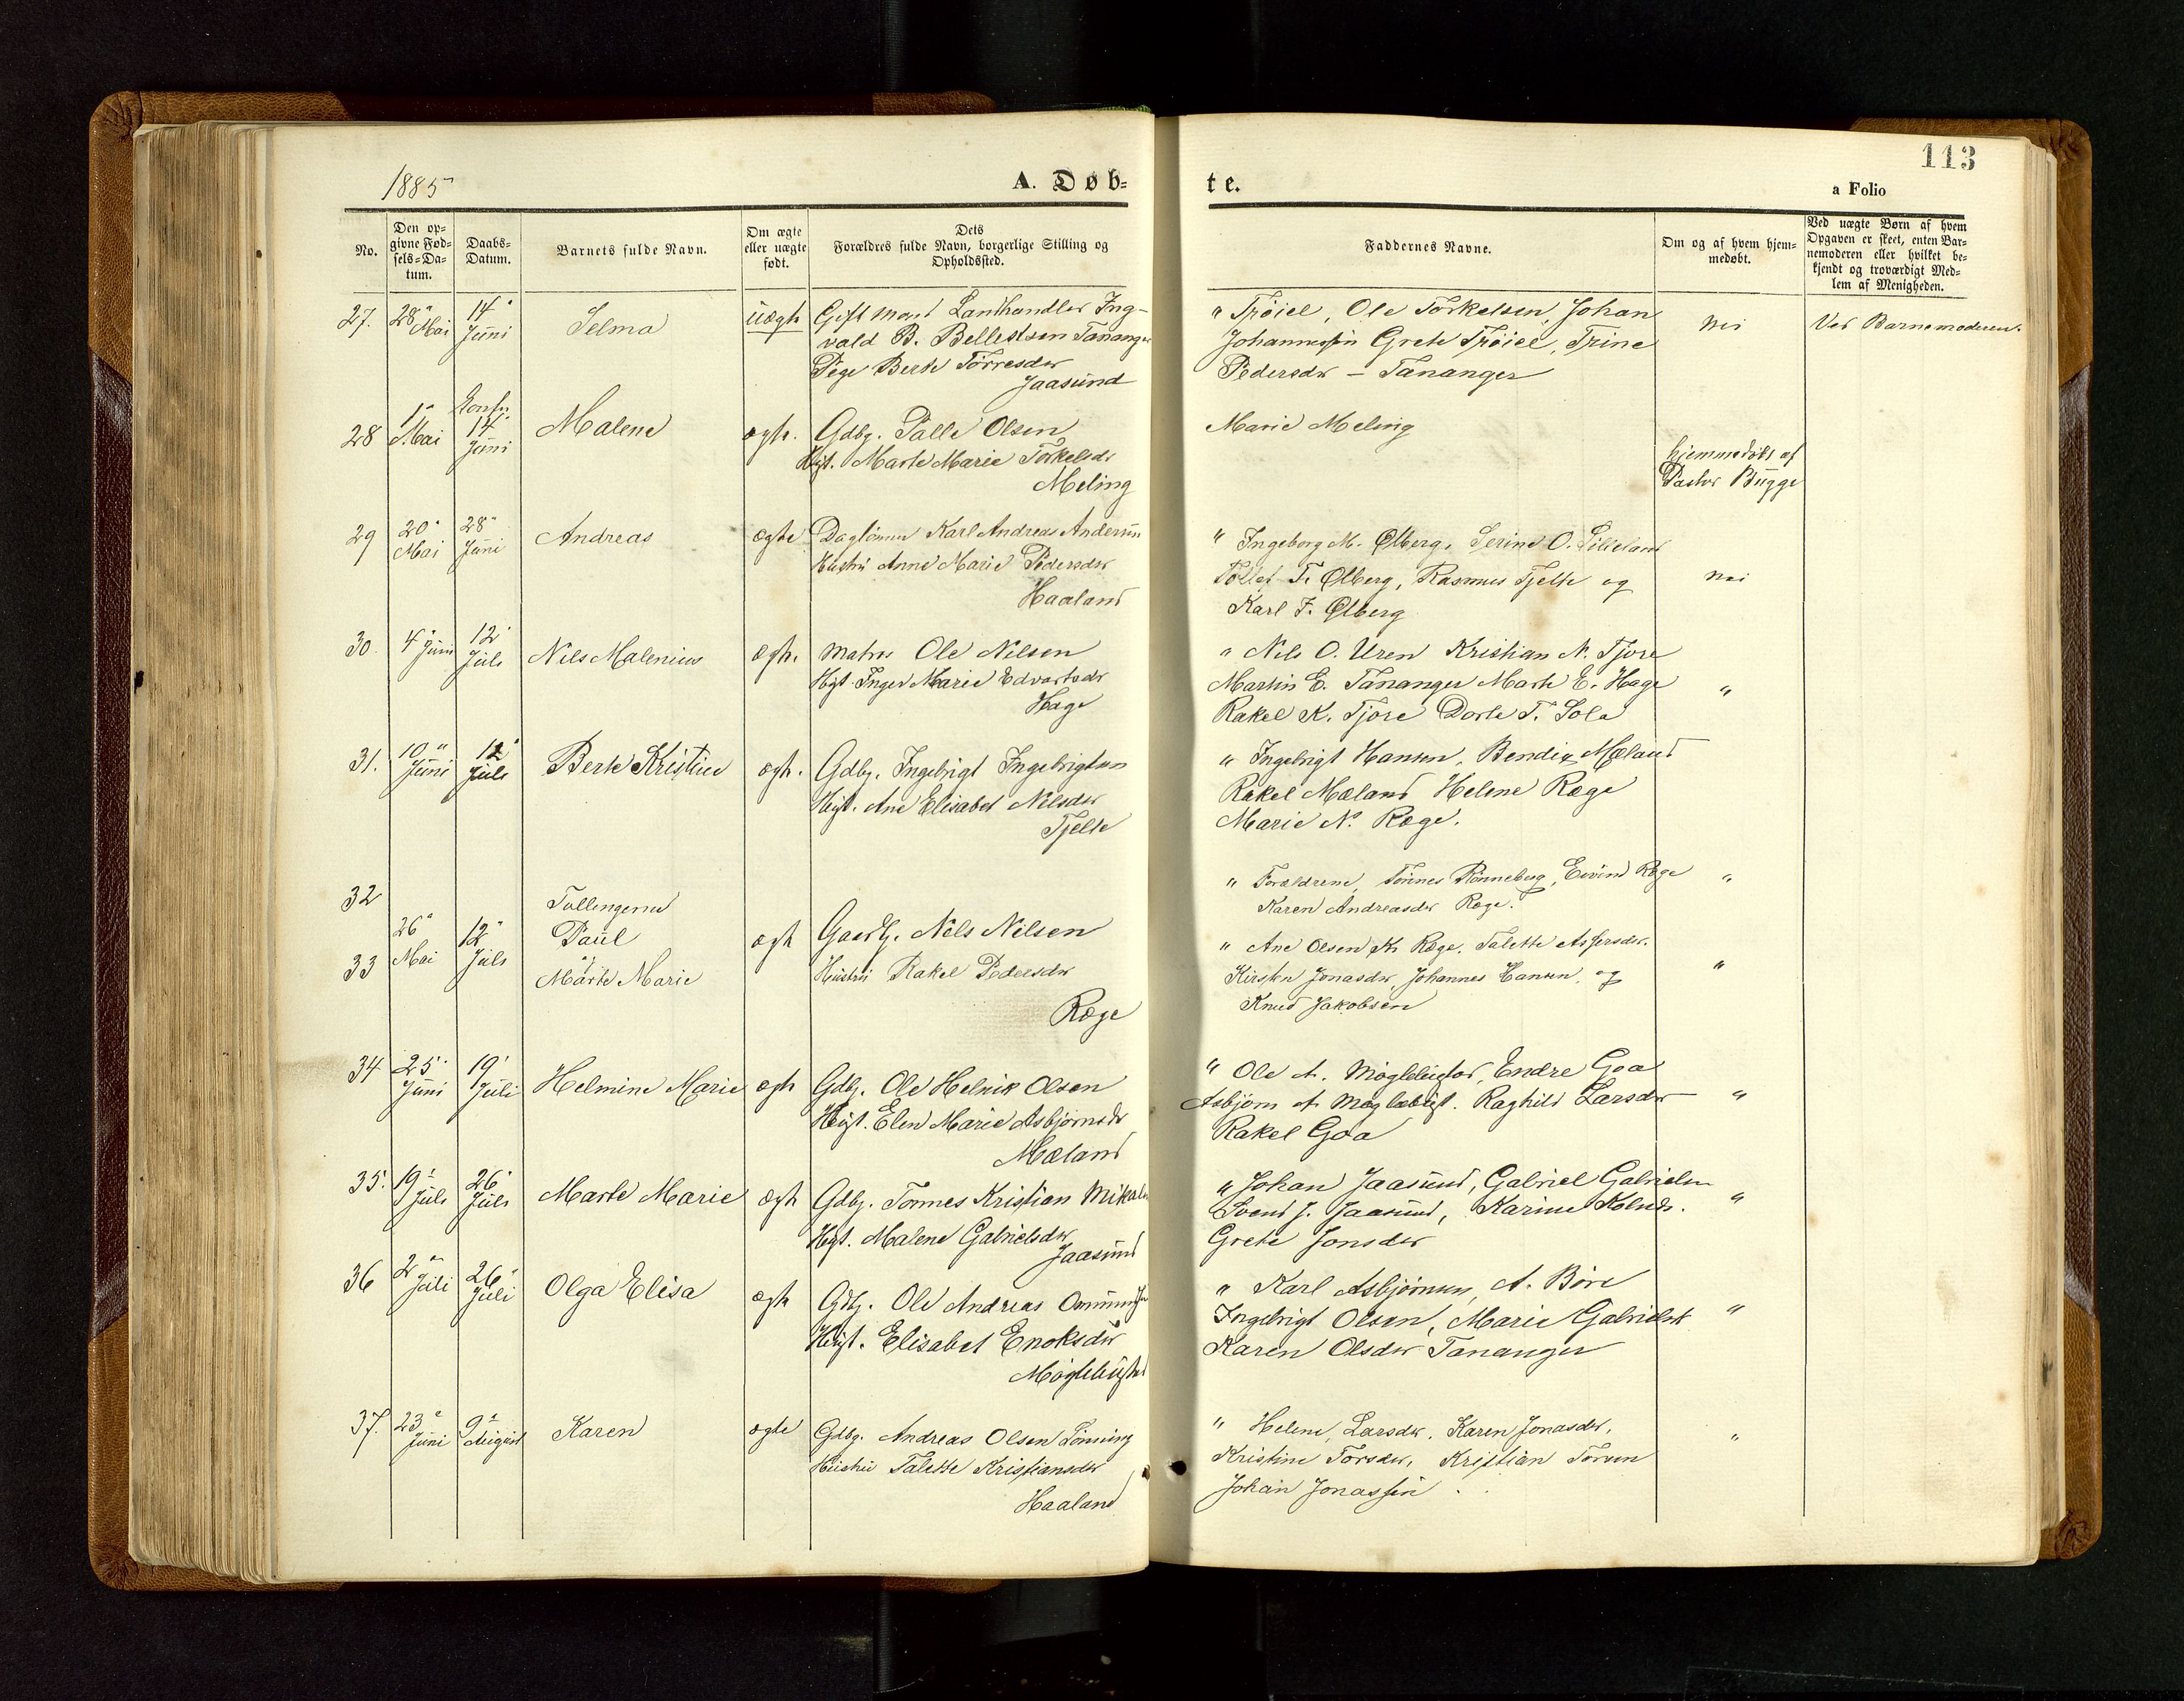 1885
A. Døb=
te.
113
a Folio
No.
Den op=
givne Fød=
sels=Da=
tum.
Daabs=
Datum.
Barnets fulde Navn.
Om ægte
eller uægte
født.
Dets
Forældres fulde Navn, borgerlige Stilling og
Opholdssted.
Faddernes Navne.
Om og af hvem hjem=
medøbt.
Ved uægte Børn af hvem
Opgaven er skeet, enten Bar=
nemoderen eller hvilket be=
kjendt og troværdigt Med=
lem af Menigheden.
27. 28" Mai 14" Juni Selma uægte Gift Mand Landhandler Ing-
vald B. Bellestsen Tananger
Pige Berte Tørresdtr
Jaasund
" Trøiel, Ole Torkelsen, Johan
Johannessen Grete Trøiel, Trine
Pedersdtr - Tananger
nei
Ved Barnemoderen.
28 1" Mai 14" Juni Malene ægte. Gdbg. Palle Olsen
Hgt. Marte Marie Torkelsdr
Meling
Marie Meling
hjemmedøbt af
Pastor Bugge
29 20" Mai 28" Juni Andreas ægte Daglønner Karl Andreas Andersen
Hustru Anne Marie Pedersdtr
Haaland
" Ingeborg M. Ølberg, Serine O. Lilleland
T. Ølberg, Rasmus Tjelte og
Karl F. Ølberg
nei
30. 4" Juni 12" Juli Nils Malenius ægte. Matros Ole Nilsen
Hgt. Inger Marie Edvartsdr
Hage
" Nils O. Uren Kristian N. Tjore
Martin E. Tananger Marte E. Hage
Rakel K. Tjore Dorte T. Sola
"
31. 10" Juni 12" Juli Berte Kristine ægte. Gdbg. Ingebrigt Ingebrigtsen
Hgt. Ane Elisabet Nilsdtr
Tjelte
" Ingebrigt Hansen, Bendix Mæland
Rakel Mæland Helene Ræge
Marie N. Ræge.
32
Tvillingerne
Paul
" Forældrene, Tønnes Rønneberg, Eivind Ræge
Karen Andreasdtr Ræge.
"
26" Mai 12" Juli
ægte Gaardbg. Nils Nilsen
33
Marte Marie
Hustru Rakel Pedersdtr
Ræge
" Ane Olsen Ræge. Talette Asgersdtr.
Kirsten Jonasdtr, Johannes Hansen, og
Knud Jakobsen
"
34 25" Juni 19" Juli Helmine Marie ægte Gdbg. Ole Helmik Olsen
Hgt. Elen Marie Asbjørnsdr
Mæland
" Ole A. Møglebustad, Endre Goa
Asbjørn A. Møglebust. Raghild Larsdtr
Rakel Goa
"
35. 19" Juli 26" Juli Marte Marie ægte Gdbg. Tønnes Kristian Mikals
Hgt. Malene Gabrielsdtr
Jaasund
" Johan Jaasund, Gabriel Gabrielsen
Svend J. Jaasund, Karine Kolndr.
Grete Jonsdtr
"
36 2" Juli 26" Juli Olga Elisa ægte Gdbg. Ole Andreas Omundsen
Hgt. Elisabet Enoksdtr
Møglebustad
" Karl Asbjørnsen, A. Børe
Ingebrigt Olsen, Marie Gabrielsdt
Karen Olsdtr Tananger
"
37. 23" Juni 9" August Karen ægte Gdbg. Andreas Olsen Lønning
Hustru Talette Kristiansdtr
Haaland
" Helene Larsdtr. Karen Jonasdtr.
Kristine Torsdtr, Kristian Torsen
Johan Jonassen.
"